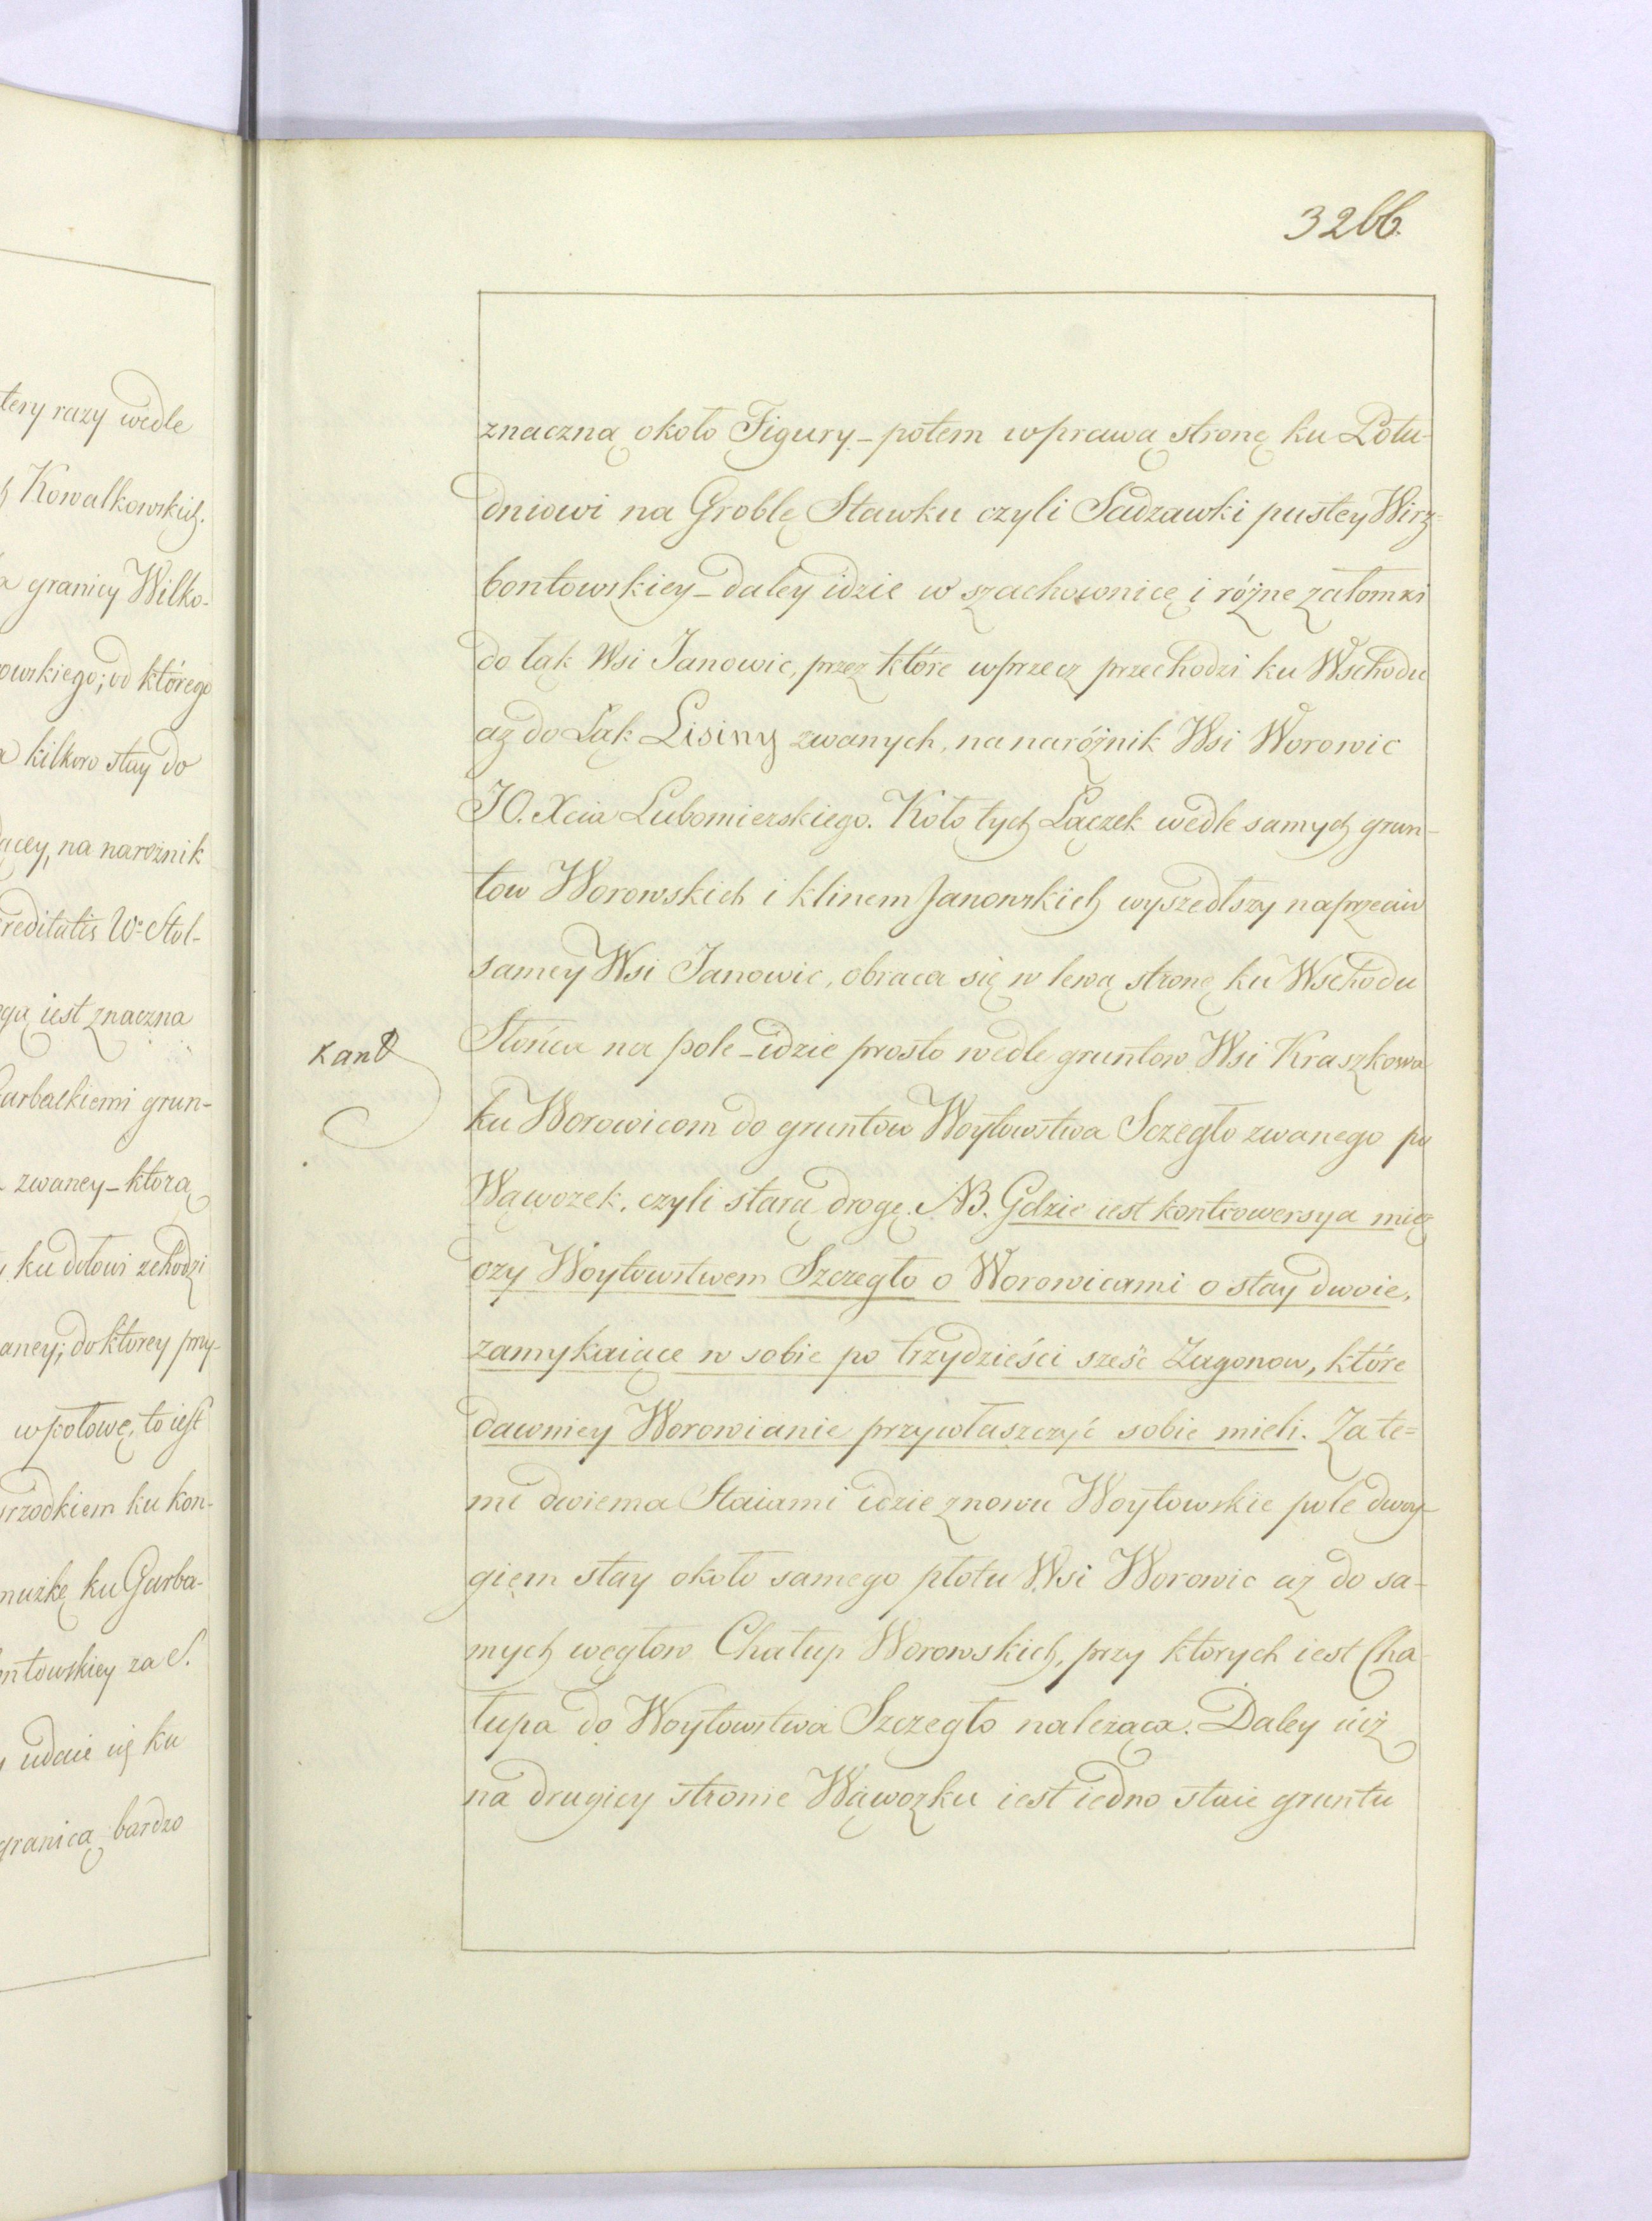 3266.
znaczną około Figury – potem w prawą stronę ku Połu-
dniowi na Groblę Stawku czyli Sadzawki pustey Wirz-
bontowskiey – daley idzie w szachownicę i różne załomki
do łąk Wsi Janowic, przez które wprzecz przechodzi ku Wschodu
aż do Łąk Lisiny zwanych, na narożnik Wsi Worowic
JO. Xcia Lubomierskiego. Koło tych Łączek wedle samych grun-
tow Worowskich i klinem Janowskich wyszedłszy naprzeciw
samey Wsi Janowic, obraca się w lewą stronę ku Wschodu
Słońca na pole – idzie prosto wedle gruntow Wsi Kraszkowa
Kant
ku Worowicom do gruntow Woytowstwa Sczegło zwanego po
Wąwozek, czyli starą drogę. NB. Gdzie iest kontrowersya mię
czy Woytowstwem Szczegło o Worowicami o stay dwoie,
zamykaiące w sobie po trzydzieści sześć Zagonow, które
dawniey Worowianie przywłaszczyć sobie mieli. Za te=
mi dwiema Staiami idzie znowu Woytowskie pole dwoy-
giem stay około samego płotu Wsi Worowic aż do sa-
mych węgłow Chałup Worowskich, przy ktorych iest Cha-
łupa do Woytowstwa Szczegło należąca. Daley iuż
na drugiey stronie Wąwozku iest iedno staie gruntu
tery razy wedle
Kowalkowskich.
granicy Wilko-
owskiego; od którego
kilkoro stay do
ącey, na narożnik
reditatis Wo Stol-
gą iest znaczna
arbackiemi grun-
zwaney – ktora
ku dołowi zchodzi
aney; do ktorey przy-
w połowę, to iest
srzodkiem ku kon-
ku Garba-
ntowskiey za S.
udaie się ku
granicą bardzo